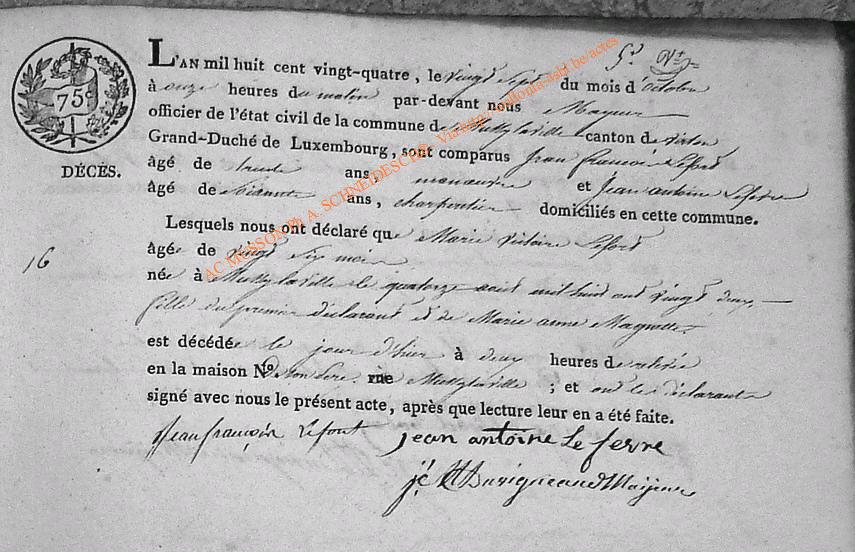 L'AN mil huit cent vingt-quatre, le vingt Sept du mois d'octobre
à onze heures du matin par-devant nous Mayeur
officier de l'état civil de la commune de Mussy la ville canton de virton
Grand-Duché de Luxembourg, sont comparus Jean françois Lefort
âgé de trente ans, manœuvre et Jean antoine Lefevre
âgé de soixante ans, charpentier domiciliés en cette commune.
Lesquels nous ont déclaré que Marie victoire Lefort
âgée de vingt Six mois
née à Mussy la ville le quatorze aout mil huit cent vingt deux
fille du premier déclarant et de Marie anne Magnette
est décédée le jour d'hier à deux heures de relevée
en la maison No. de son pere rue Mussy la ville ; et ont les déclarants
signé avec nous le présent acte, après que lecture leur en a été faite.
Jean françois Lefort jean antoine Le fevre
Mayeur
75
DÉCÈS.
16
AC MUSSON Ph A. SCHNEIDESCH